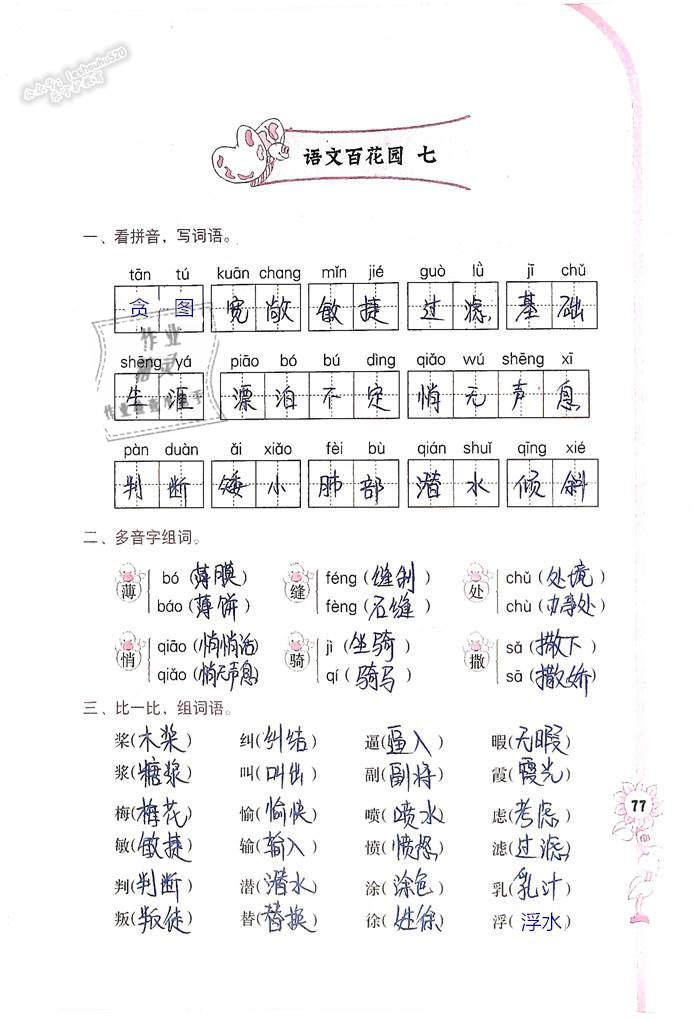 公众号：leshouhu520
语文百花园 七
一、看拼音，写词语。
tān tú kuān chang mǐn jié guò lǜ jī chǔ
贪图 宽敞 敏捷 过滤 基础
shēng yá piāo bó bú dìng qiǎo wú shēng xī
生涯 漂泊不定 悄无声息
作业
pàn duàn ǎi xiǎo fèi bù qián shuǐ qīng xié
判断 矮小 肺部 潜水 倾斜
二、多音字组词。
薄 bó（薄膜） 缝 féng（缝制） 处 chǔ（处境）
báo（薄饼） fèng（石缝） chù（办事处）
悄 qiāo（悄悄话） 骑 jì（坐骑） 撒 sǎ（撒下）
qiǎo（悄无声息） qí（骑马） sā（撒娇）
三、比一比，组词语。
桨（木桨） 纠（纠结） 逼（逼入） 暇（无暇）
浆（糖浆） 叫（叫出） 副（副将） 霞（霞光）
梅（梅花） 愉（愉快） 喷（喷水） 虑（考虑）
77
敏（敏捷） 输（输入） 愤（愤怒） 滤（过滤）
判（判断） 潜（潜水） 涂（涂色） 乳（乳汁）
叛（叛徒） 替（替换） 徐（姓徐） 浮（浮水）